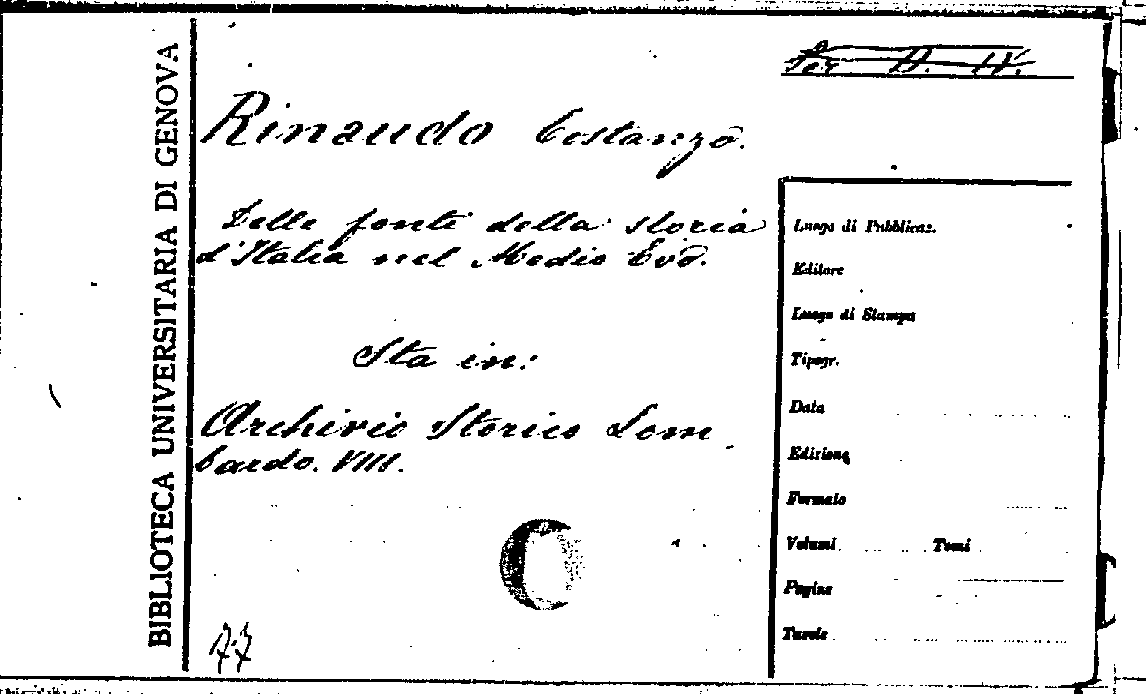 BIBLIOTECA UNIVERSITARIA DI GENOVA
Per B. IV.
Rinaudo Costanzo.
Delle fonti della storia
d'Italia nel Medio Evo.
Sta in:
Archivio Storico Lom
bardo. VIII.
77
Luogo di Pubblicaz.
Editore
Luogo di Stampa
Tipogr.
Data
Edizione
Formato
Volumi Tomi
Pagine
Tavole